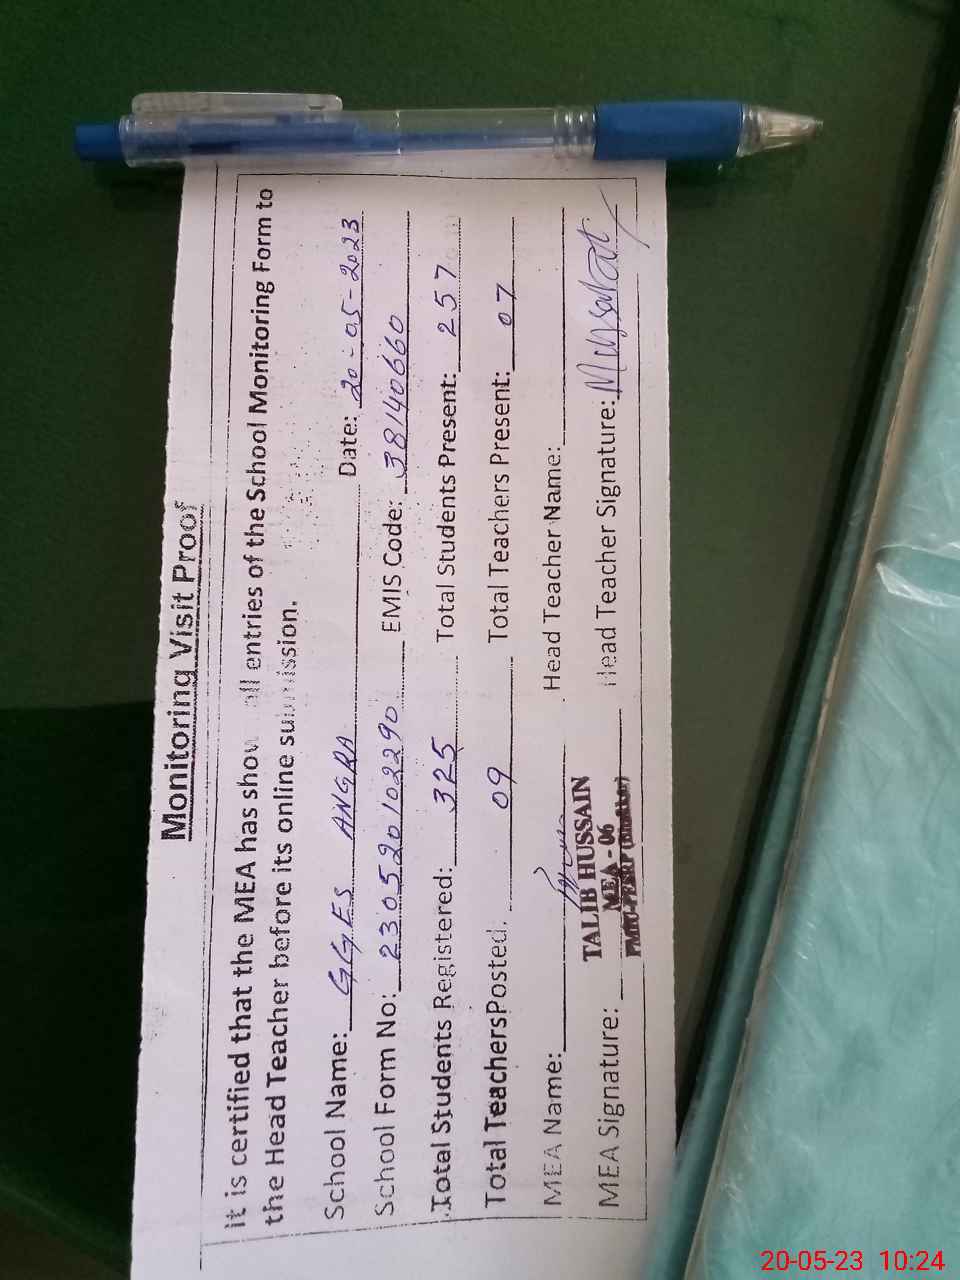 Monitoring Visit Proof
It is certified that the MEA has shown all entries of the School Monitoring Form to
the Head Teacher before its online submission.
School Name: GGES ANGRA Date: 20-05-2023
School Form No: 230520102290 EMIS Code: 38140660
Total Students Registered: 325 Total Students Present: 257
Total Teachers Posted: 09 Total Teachers Present: 07
MEA Name: Head Teacher Name:
TALIB HUSSAIN
MEA - 06
MEA Signature: Head Teacher Signature:
20-05-23 10:24